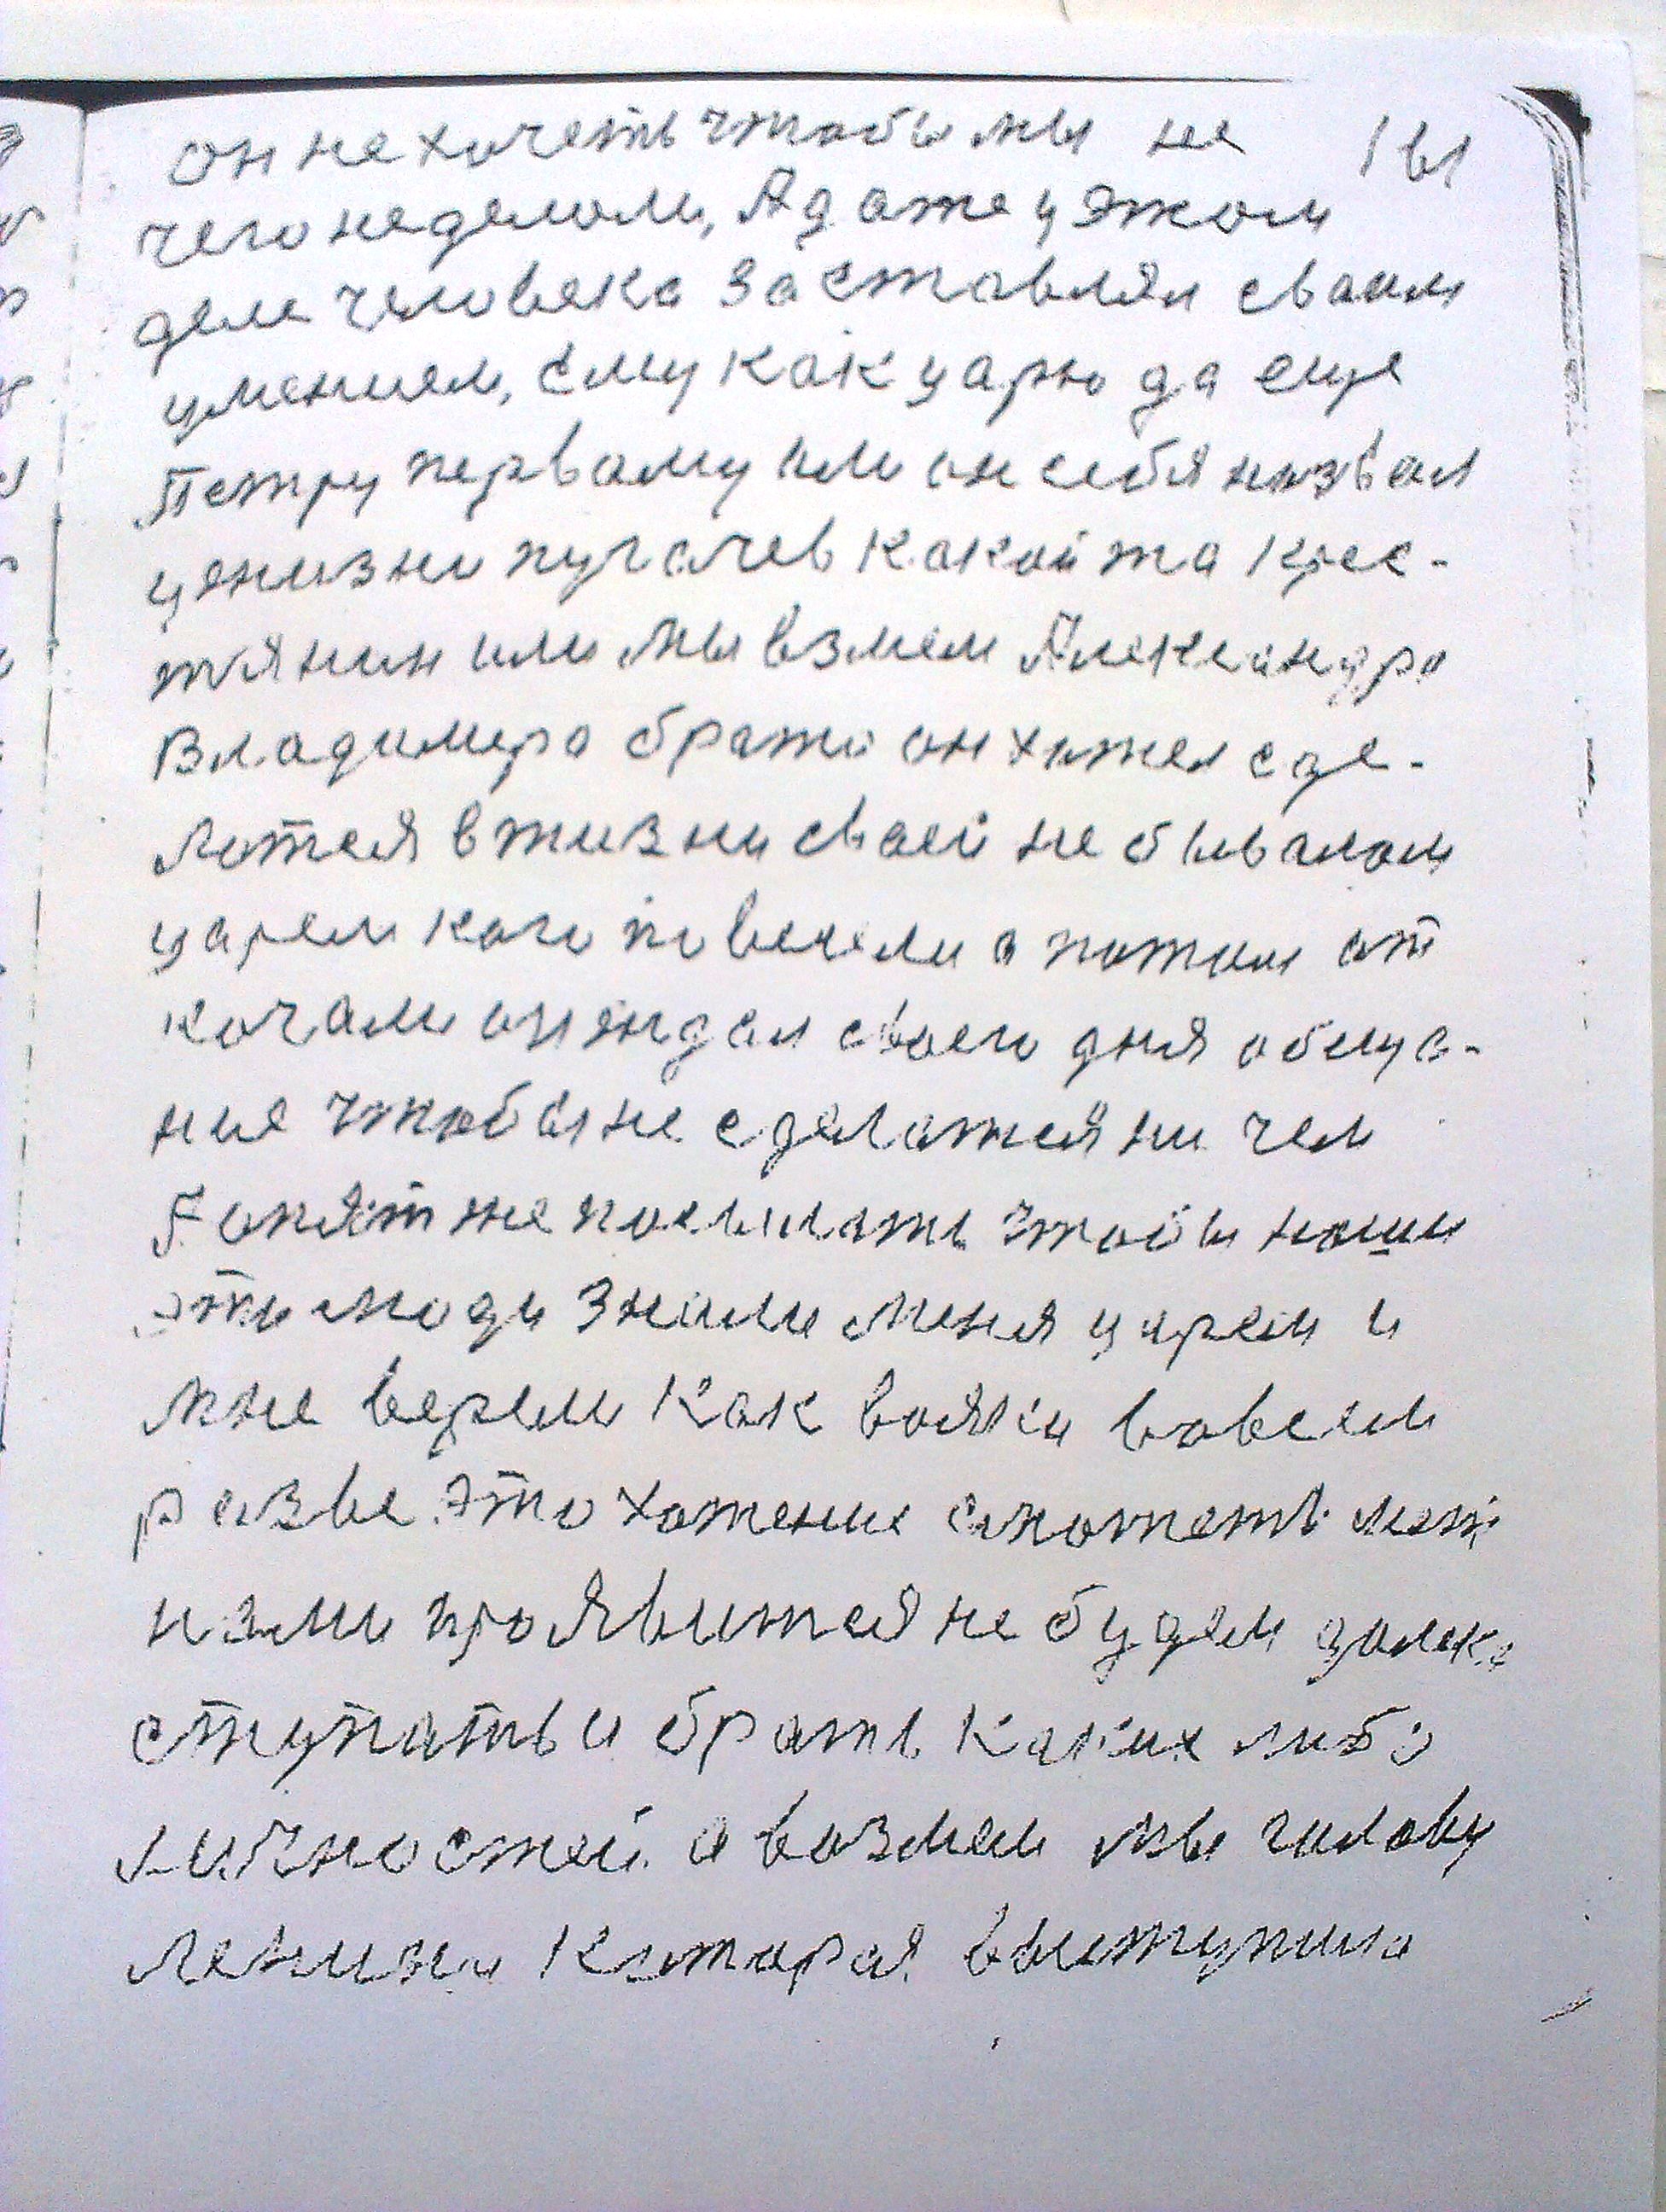 он не хочеть чтобы мы не
чего неделом, А даже у этом
деле человека заставлял сваим
умением, Ему как царю да еще
Петру первому им он себя назвал
у жизни пугачев какой та крес-
тянин или мы взмем Александра
Владимера брата он хотел сде-
латся в жизни своей не бывалом
царем каго повесели а потом от
качали он ждал своего дня
ние чтобы не сделатся ни чем
опят же посылать чтобы наши
эти люди знали меня царем и
мне верели как вояки вовсем
разве это хотение сможеть меж
нами проявится не будем далека
ступать и брать каких либо
личностей а возмем мы голову
Ленина которая выступила